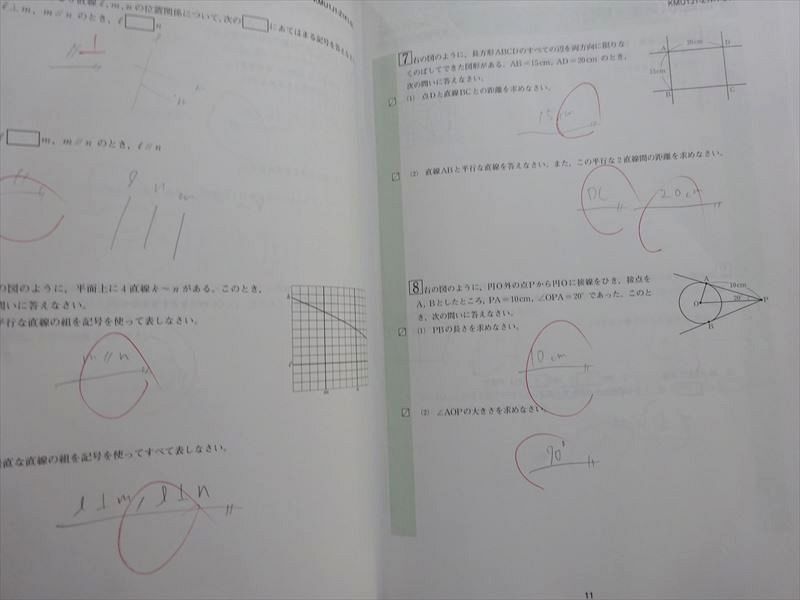 直線ℓ, m, nの位置関係について, 次の□にあてはまる記号を答えな
ℓ⊥m, m∥nのとき, ℓ□n
⊥
□m, m∥nのとき, ℓ∥n
∥
ℓ n m
の図のように, 平面上に4直線k〜nがある。このとき,
問いに答えなさい。
平行な直線の組を記号を使って表しなさい。
m∥n
垂直な直線の組を記号を使ってすべて表しなさい。
ℓ⊥m, ℓ⊥n
7 右の図のように, 長方形ABCDのすべての辺を両方向に限りな
くのばしてできた図形がある。AB=15cm, AD=20cmのとき,
次の問いに答えなさい。
(1) 点Dと直線BCとの距離を求めなさい。
15cm
A 20cm D
15cm
B C
(2) 直線ABと平行な直線を答えなさい。また, この平行な2直線間の距離を求めなさい。
DC 20cm
8 右の図のように, 円O外の点Pから円Oに接線をひき, 接点を
A, Bとしたところ, PA=10cm, ∠OPA=20°であった。このと
き, 次の問いに答えなさい。
(1) PBの長さを求めなさい。
10cm
A 10cm
O 20° P
B
(2) ∠AOPの大きさを求めなさい。
90°
11